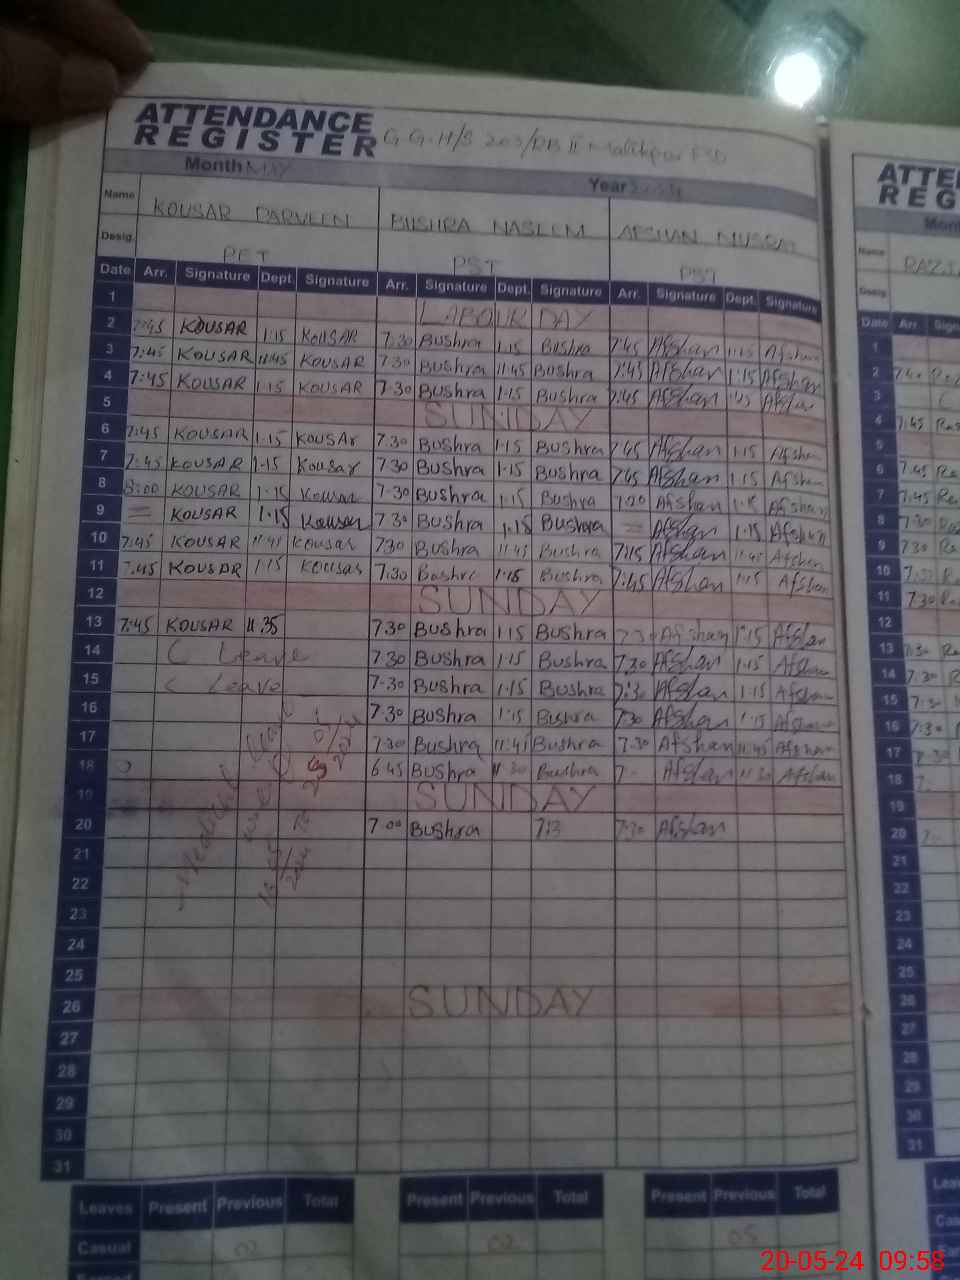 ATTENDANCE
REGISTER G G.H/S 203/RB II Malikpur FSD
Month MAY Year
Name KOUSAR PARVEEN BUSHRA NASEEM AFSHAN NUSRAT
Desig. PET PST PST
Date Arr. Signature Dept. Signature Arr. Signature Dept. Signature Arr. Signature Dept. Signature
1 LABOUR DAY
2 7:45 KOUSAR 1:15 KOUSAR 7:30 Bushra 1:15 Bushra 7:45 Afshan 1:15 Afshan
3 7:45 KOUSAR 11:45 KOUSAR 7:30 Bushra 11:45 Bushra 7:45 Afshan 1:15 Afshan
4 7:45 KOUSAR 1:15 KOUSAR 7:30 Bushra 1:15 Bushra 7:45 Afshan Afshan
5 SUNDAY
6 7:45 KOUSAR 1:15 KOUSAr 7:30 Bushra 1:15 Bushra 7:45 Afshan 1:15 Afshan
7 7:45 KOUSAR 1:15 Kousar 7:30 Bushra 1:15 Bushra 7:45 Afshan 1:15 Afshan
8 8:00 KOUSAR 1:15 Kousar 7:30 Bushra 1:15 Bushra Afshan Afshan
9 = KOUSAR 1:15 Kousar 7:30 Bushra 1:15 Bushra = Afshan 1:15 Afshan
10 7:45 KOUSAR 11:45 Kousar 7:30 Bushra 11:45 Bushra 7:15 Afshan 11:45 Afshan
11 7:45 KOUSAR 1:15 Kousar 7:30 Bushra 1:15 Bushra 7:45 Afshan 1:15 Afshan
12 SUNDAY
13 7:45 KOUSAR 11:35 7:30 Bushra 1:15 Bushra 7:30 Afshan 1:15 Afshan
14 C Leave 7:30 Bushra 1:15 Bushra 7:30 Afshan 1:15 Afshan
15 C Leave 7:30 Bushra 1:15 Bushra 7:30 Afshan 1:15 Afshan
16 7:30 Bushra 1:15 Bushra 7:30 Afshan 1:15 Afshan
17 7:30 Bushra 11:45 Bushra 7:30 Afshan 11:45 Afshan
18 6:45 Bushra 11:30 Bushra 7 Afshan 11:30 Afshan
19 SUNDAY
20 7:00 Bushra 7:30 Afshan
Medical leave
16 05/2024 to 25 05/2024
21
22
23
24
25
26 SUNDAY
27
28
29
30
31
Leaves Present Previous Total Present Previous Total Present Previous Total
Casual 02 05
ATTE
REG
Mont
Name
Desig.
Date Arr. Sign
1
2
3
4 7:45
5
6 7:45 Ra
7 7:45 Ra
8 7:30
9 7:30 Ra
10
11 7:30
12
13 7:30
14 7:30
15 7:30
16 7:30
17
18
19
20
21
22
23
24
25
26
27
28
29
30
31
Lea
Cas
20-05-24 09:58